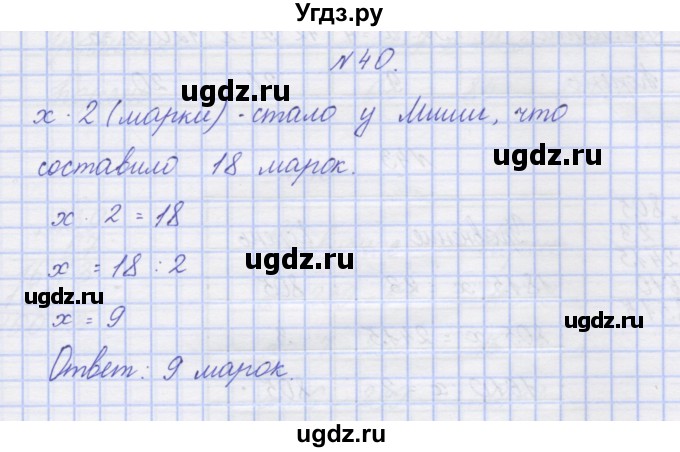 Угдз.ру
№40.
х · 2 (марки) - стало у Миши, что
составило 18 марок.
х · 2 = 18
х = 18 : 2
х = 9
Ответ: 9 марок.
ugdz.ru
ugdz.ru
ugdz.ru
ugdz.ru
ugdz.ru
ugdz.ru